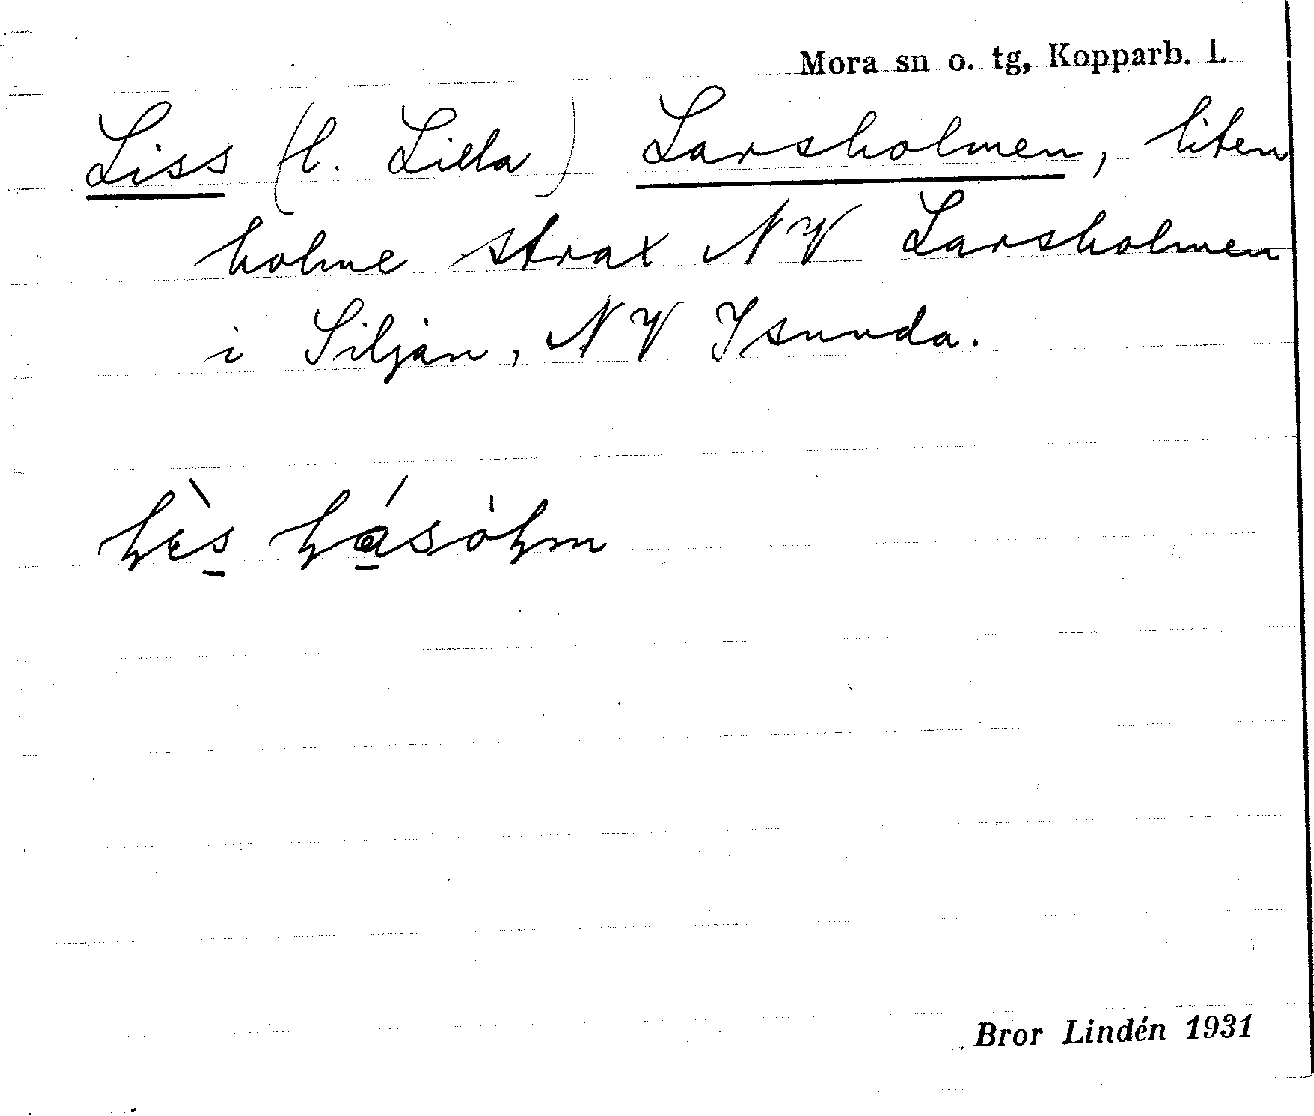 Mora sn o. tg, Kopparb. l.
Liss (l. Lilla) Larsholmen, liten
holme strax NV Larsholmen
i Siljan, NV Isunda.
Bror Lindén 1931